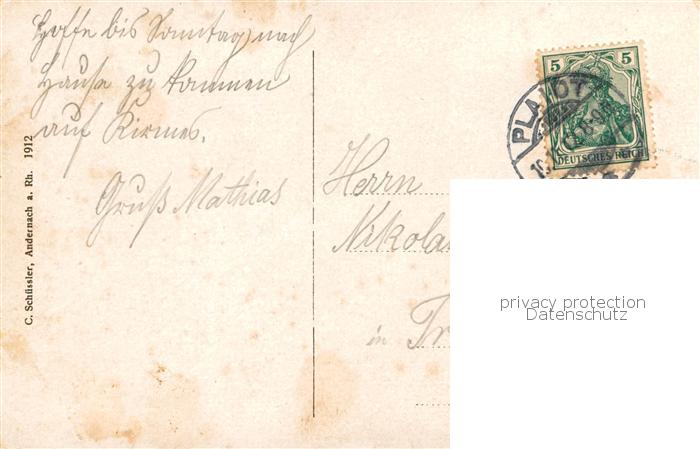 Hoffe bis Sonntag nach
Hause zu kommen
auf Kirmes.
Gruß Mathias
C. Schüssler, Andernach a. Rh. 1912
5 5
DEUTSCHES REICH
PLAIDT
Herrn
Nikola
in Tr
privacy protection
Datenschutz